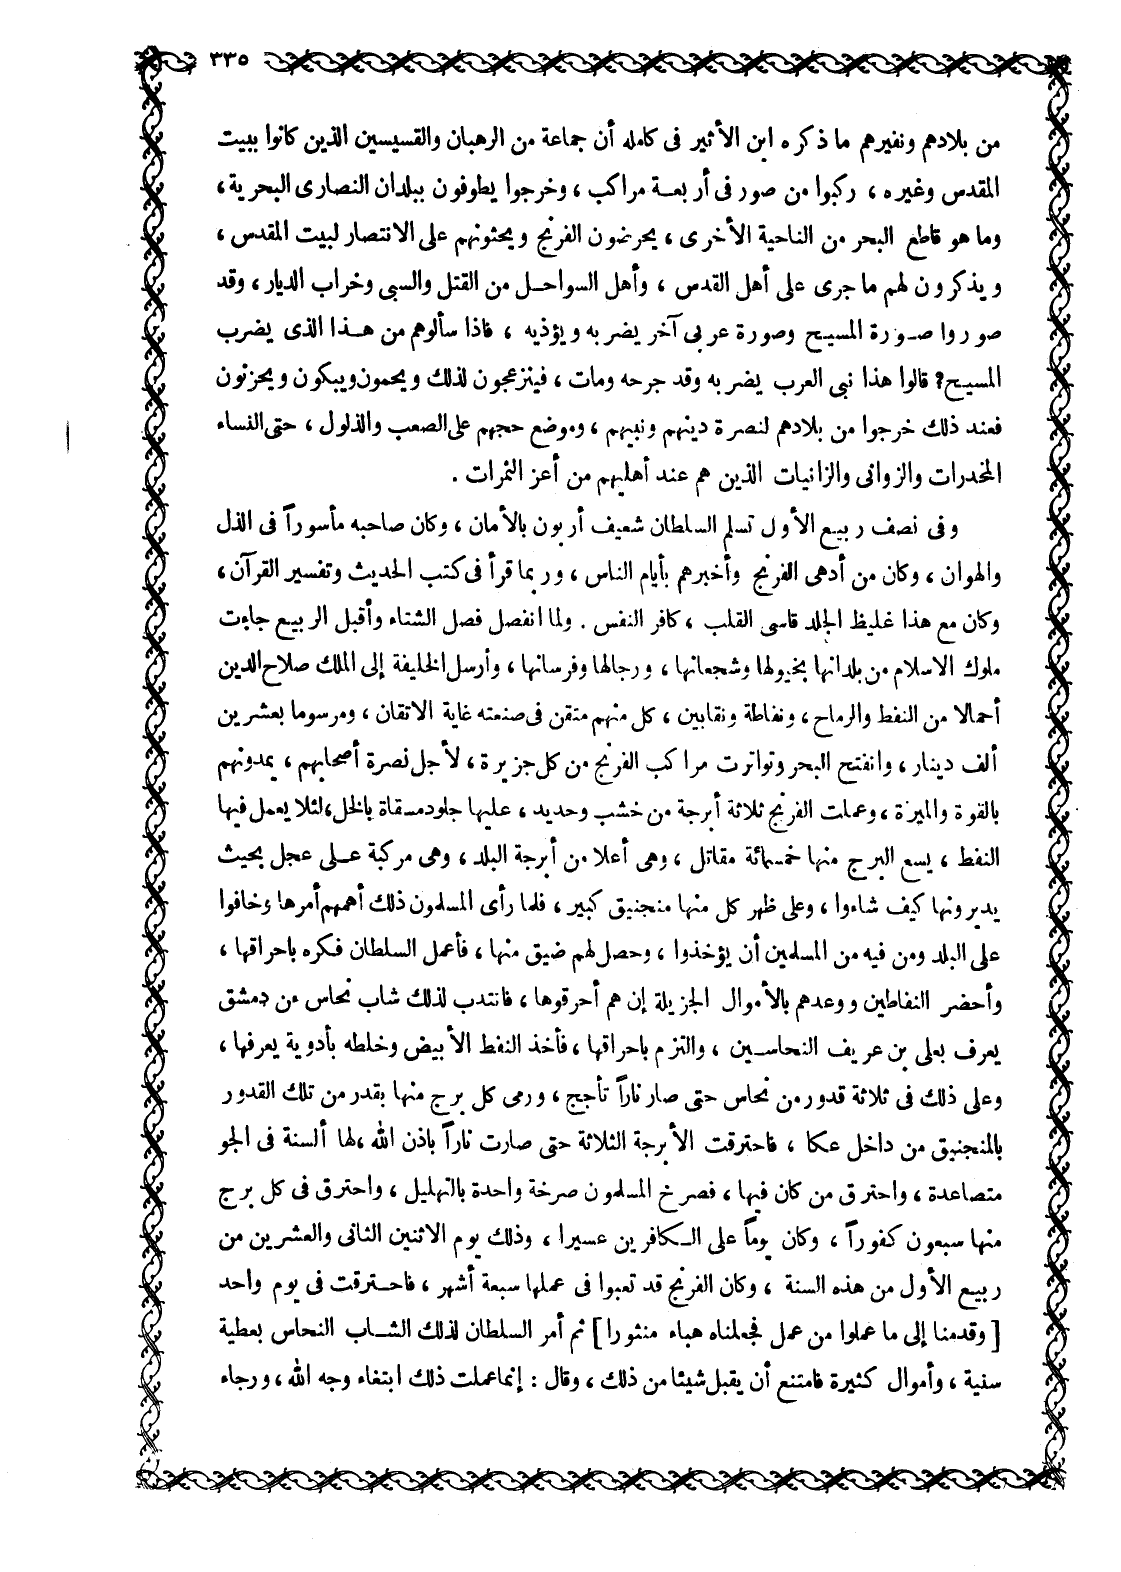 ٣٣٥
من بلادهم ونفيرهم ما ذكره ابن الأثير فى كامله أن جماعة من الرهبان والقسيسين الذين كانوا ببيت
المقدس وغيره ، ركبوا من صور فى أربعة مراكب ، وخرجوا يطوفون ببلدان النصارى البحرية ،
وما هو قاطع البحر من الناحية الأخرى ، يحرضون الفرنج ويحثونهم على الانتصار لبيت المقدس ،
ويذكرون لهم ما جرى على أهل القدس ، وأهل السواحل من القتل والسبى وخراب الديار ، وقد
صوروا صورة المسيح وصورة عربى آخر يضربه ويؤذيه ، فاذا سألوهم من هذا الذى يضرب
المسيح؟ قالوا هذا نبى العرب يضربه وقد جرحه ومات ، فينزعجون لذلك ويحمون ويبكون ويحزنون
فعند ذلك خرجوا من بلادهم لنصرة دينهم ونبيهم ، وموضع حجهم على الصعب والذلول ، حتى النساء
المخدرات والزوانى والزانيات الذين هم عند أهليهم من أعز الثمرات .
وفى نصف ربيع الأول تسلم السلطان شعيف أربون بالأمان ، وكان صاحبه مأسوراً فى الذل
والهوان ، وكان من أدهى الفرنج وأخبرهم بأيام الناس ، وربما قرأ فى كتب الحديث وتفسير القرآن ،
وكان مع هذا غليظ الجلد قاسى القلب ، كافر النفس . ولما انفصل فصل الشتاء وأقبل الربيع جاءت
ملوك الاسلام من بلدانها بخيولها وشجعانها ، ورجالها وفرسانها ، وأرسل الخليفة إلى الملك صلاح الدين
أحمالا من النفط والرماح ، ونفاطة ونقابين ، كل منهم متقن فى صنعته غاية الاتقان ، ومرسوما بعشرين
ألف دينار ، وانفتح البحر وتواترت مراكب الفرنج من كل جزيرة ، لأجل نصرة أصحابهم ، يمدونهم
بالقوة والميرة ، وعملت الفرنج ثلاثة أبرجة من خشب وحديد ، عليها جلود مسقاة بالخل ، لئلا يعمل فيها
النفط ، يسع البرج منها خمسمائة مقاتل ، وهى أعلا من أبرجة البلد ، وهى مركبة على عجل بحيث
يديرونها كيف شاءوا ، وعلى ظهر كل منها منجنيق كبير ، فلما رأى المسلمون ذلك أهمهم أمرها وخافوا
على البلد ومن فيه من المسلمين أن يؤخذوا ، وحصل لهم ضيق منها ، فأعمل السلطان فكره باحراقها ،
وأحضر النفاطين ووعدهم بالأموال الجزيلة إن هم أحرقوها ، فانتدب لذلك شاب نحاس من دمشق
يعرف بعلى بن عريف النحاسين ، والتزم باحراقها ، فأخذ النفط الأبيض وخلطه بأدوية يعرفها ،
وعلى ذلك فى ثلاثة قدور من نحاس حتى صار ناراً تأجج ، ورمى كل برج منها بقدر من تلك القدور
بالمنجنيق من داخل عكا ، فاحترقت الأبرجة الثلاثة حتى صارت ناراً باذن الله ، لها ألسنة فى الجو
متصاعدة ، واحترق من كان فيها ، فصرخ المسلمون صرخة واحدة بالتهليل ، واحترق فى كل برج
منها سبعون كفوراً ، وكان يوماً على الكافرين عسيرا ، وذلك يوم الاثنين الثانى والعشرين من
ربيع الأول من هذه السنة ، وكان الفرنج قد تعبوا فى عملها سبعة أشهر ، فاحترقت فى يوم واحد
[ وقدمنا إلى ما عملوا من عمل فجعلناه هباء منثورا ] ثم أمر السلطان لذلك الشاب النحاس بعطية
سنية ، وأموال كثيرة فامتنع أن يقبل شيئا من ذلك ، وقال : إنما عملت ذلك ابتغاء وجه الله ، ورجاء